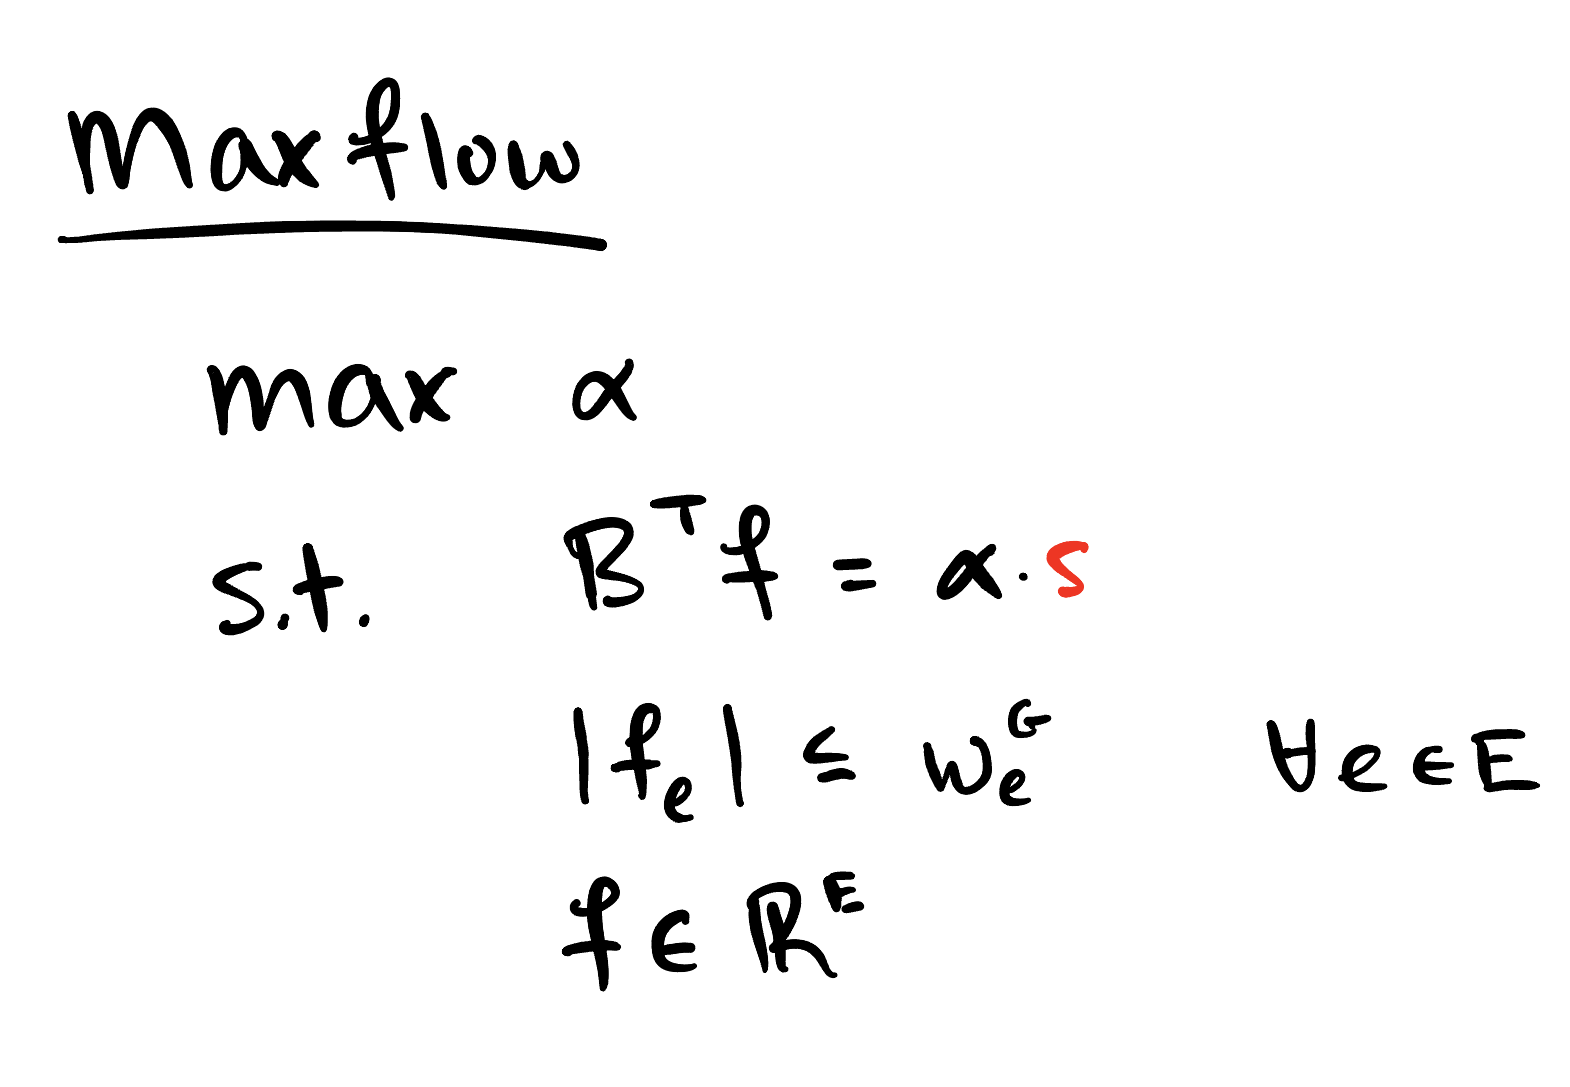 Maxflow
max α
s.t. Bᵀf = α·s
|fₑ| ≤ wₑᴳ ∀e∈E
f ∈ ℝᴱ